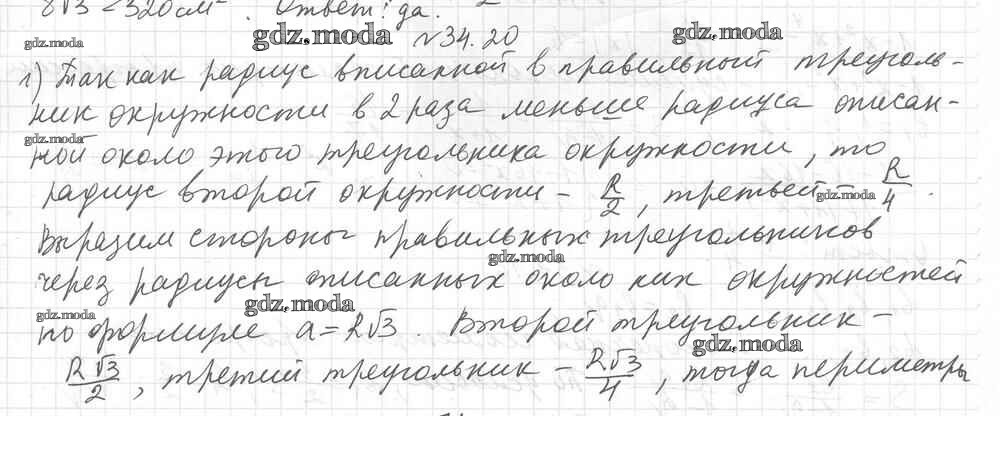 8√3 < 320 см². Ответ: да.
№34.20
1) Так как радиус вписанной в правильный треуголь-
ник окружности в 2 раза меньше радиуса описан-
ной около этого треугольника окружности, то
радиус второй окружности – R/2, третьей – R/4.
Выразим стороны правильных треугольников
через радиусы описанных около них окружностей
по формуле a = R√3. Второй треугольник –
R√3/2, третий треугольник – R√3/4, тогда периметры
gdz.moda
gdz.moda
gdz.moda
gdz.moda
gdz.moda
gdz.moda
gdz.moda
gdz.moda
gdz.moda